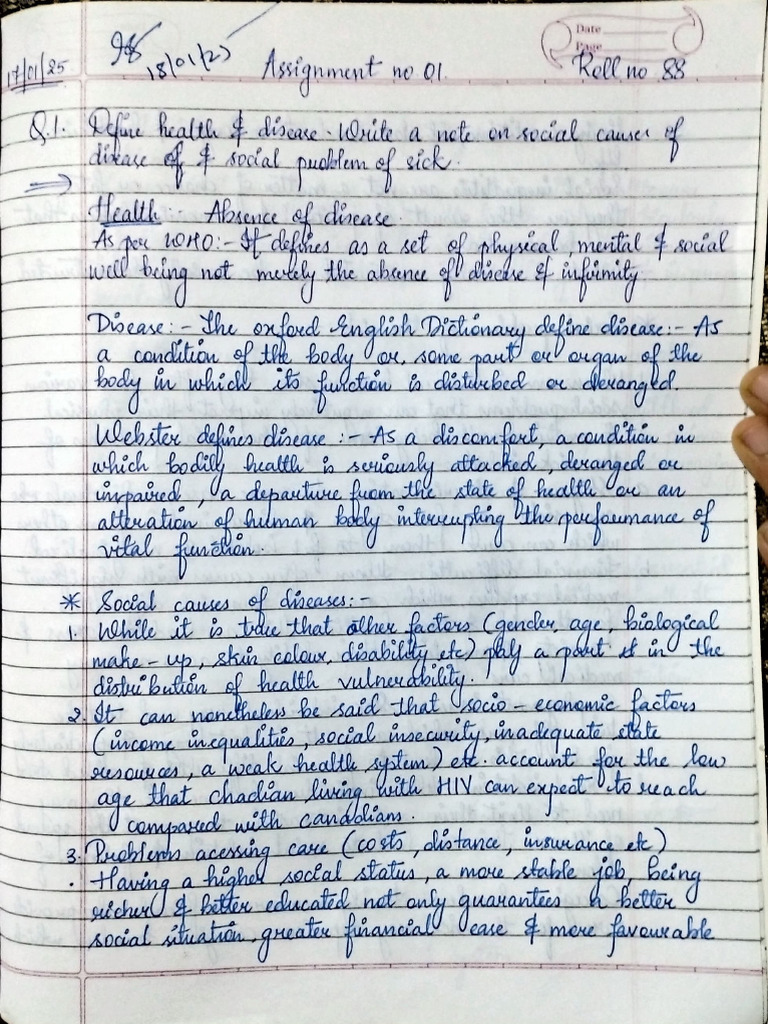 Date
Page
17/01/25
18/01/25
Assignment no 01.
Roll no 88
Q.1. Define health & disease. Write a note on social causes of
disease of & social problem of sick.
Health :- Absence of disease.
As per WHO:- It defines as a set of physical mental & social
well being not merely the absence of disease & infirmity
Disease:- The oxford English Dictionary define disease:- As
a condition of the body or, some part or organ of the
body in which its function is disturbed or deranged.
Webster defines disease :- As a discomfort, a condition in
which bodily health is seriously attacked, deranged or
impaired, a departure from the state of health or an
alteration of human body interrupting the performance of
vital function.
* Social causes of diseases:-
1. While it is true that other factors (gender, age, biological
make-up, skin colour, disability etc) paly a part in the
distribution of health vulnerability.
2. It can nonetheless be said that socio-economic factors
(income inequalities, social insecurity, inadequate state
resources, a weak health system) etc. account for the low
age that chadian living with HIV can expect to reach
compared with canadians.
3. Problems acessing care (costs, distance, insurance etc)
. Having a higher social status, a more stable job, being
richer & better educated not only guarantees a better
social situation, greater financial ease & more favourable